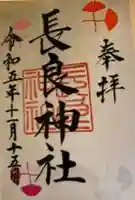 奉拝
長良神社
令和五年十一月十五日